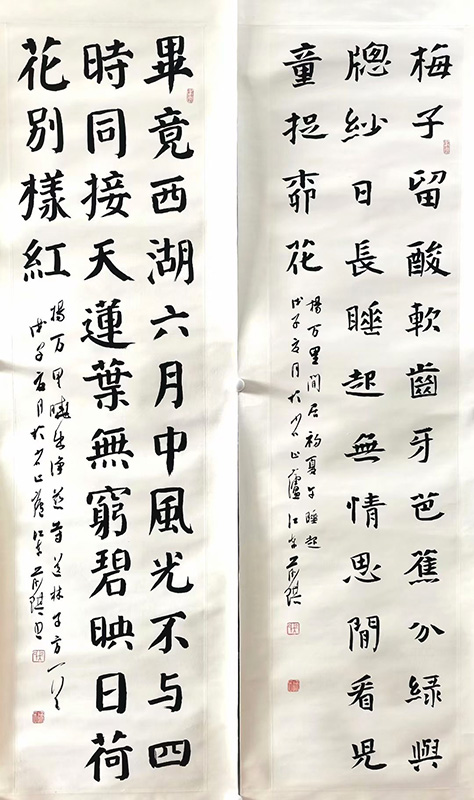 梅子留酸軟齒牙芭蕉分綠與
牕紗日長睡起無情思閒看児
童捉桺花
楊万里閒居初夏午睡起
戊子夏月於
畢竟西湖六月中風光不与四
時同接天蓮葉無窮碧映日荷
花別樣紅
楊万里曉出淨慈寺送林子方一首
戊子夏月於